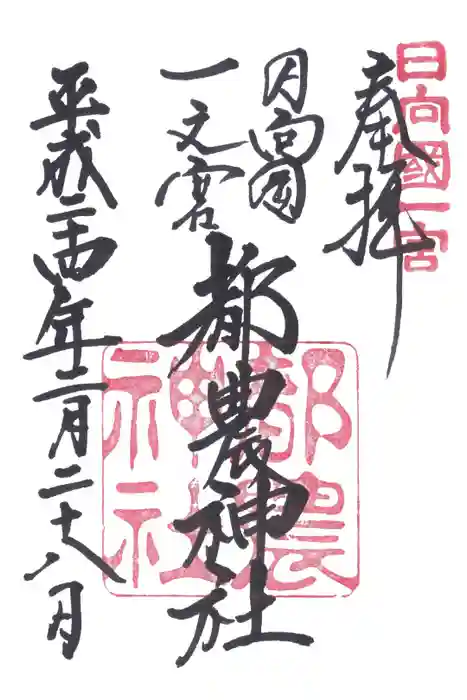 日向國一宮
奉拝
日向国
一之宮
都農神社
都農
神社
平成二十四年十二月二十八日